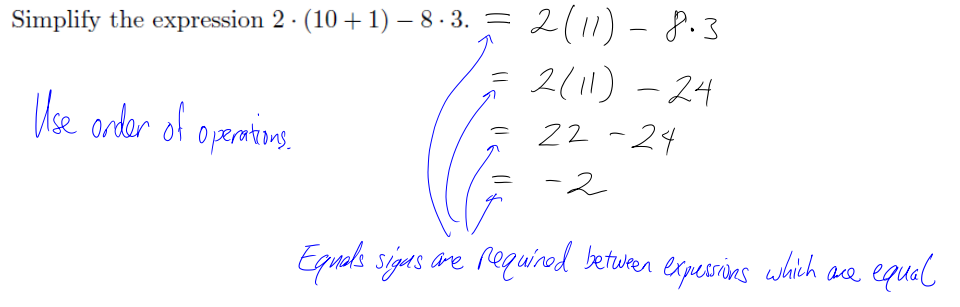 Simplify the expression 2 · (10 + 1) − 8 · 3. = 2(11) - 8·3
= 2(11) - 24
Use order of operations.
= 22 - 24
= -2
Equals signs are required between expressions which are equal